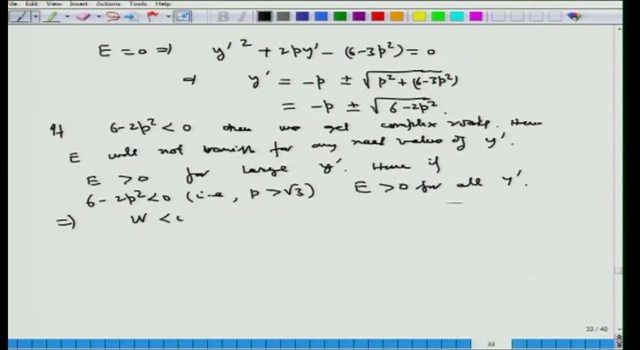 File Edit View Insert Actions Tools Help
E = 0 ⇒ y'² + 2py' - (6-3p²) = 0
⇒ y' = -p ± √p² + (6-3p²)
= -p ± √6-2p².
If 6-2p² < 0 then we get complex roots. Hence
E will not vanish for any real value of y'.
E > 0 for large y'. Hence if
6-2p² < 0 (i.e., p > √3) E > 0 for all y'.
⇒ W <
33 / 40
33